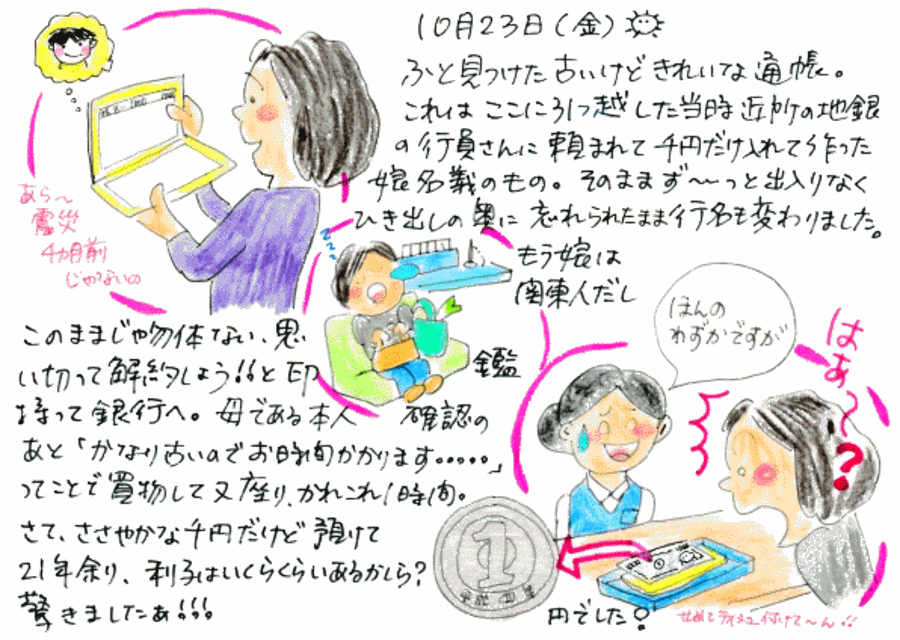 10月23日(金)
ふと見つけた古いけどきれいな通帳。
これはここに引っ越した当時近所の地銀
の行員さんに頼まれて千円だけ入れて作った
娘名義のもの。そのままず〜っと出入りなく
ひき出しの奥に忘れられたまま行名も変わりました。
あら〜
震災
4ヵ月前
じゃないの
もう娘は
関東人だし
このままじゃ勿体ない、思
い切って解約しよう!!と印鑑
持って銀行へ。母である本人確認の
あと「かなり古いのでお時間かかります・・・・・」
ってことで買物して又座り、かれこれ1時間。
さて、ささやかな千円だけど預けて
21年余り、利子はいくらくらいあるかしら?
驚きましたあ!!!
zzz
ほんの
わずかですが
はあ〜?
1
平成
年
円でした?
せめてティッシュ付けて〜ん!!